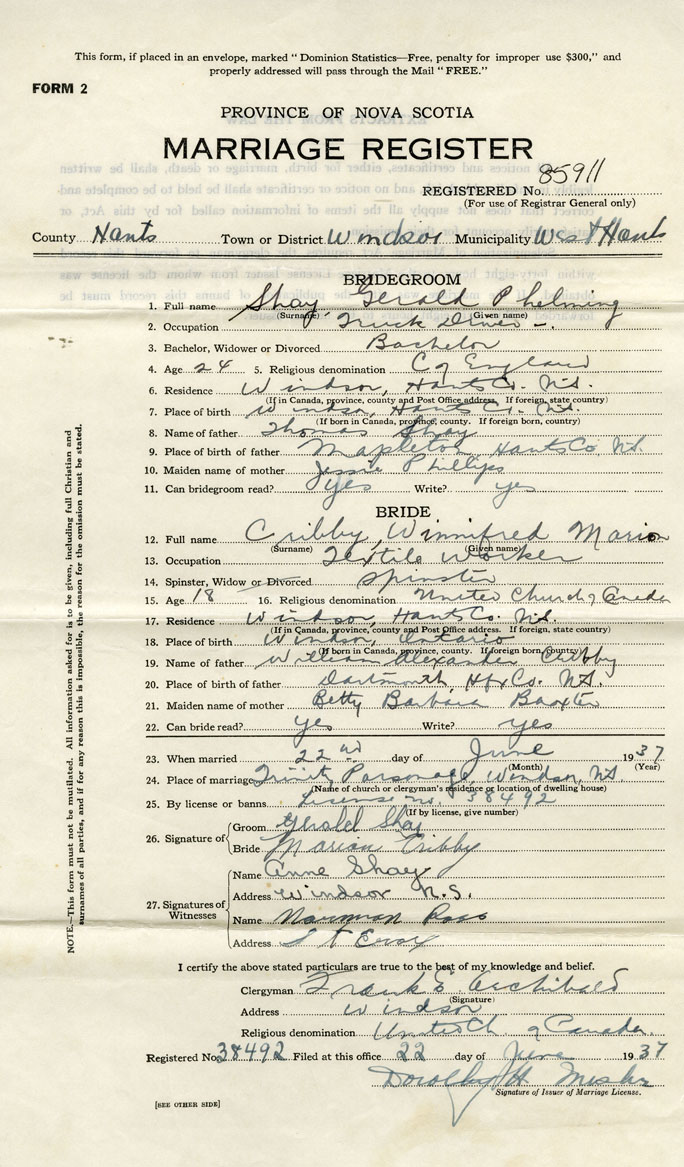 This form, if placed in an envelope, marked " Dominion Statistics—Free, penalty for improper use $300," and
properly addressed will pass through the Mail " FREE."
FORM 2
PROVINCE OF NOVA SCOTIA
MARRIAGE REGISTER
REGISTERED No. 85911
(For use of Registrar General only)
County Hants Town or District Windsor Municipality West Hants
BRIDEGROOM
1. Full name Shay Gerald
(Surname) (Given name)
2. Occupation Truck Driver -.
3. Bachelor, Widower or Divorced Bachelor
4. Age 24 5. Religious denomination C of England
6. Residence Windsor, Hants Co. N.S.
(If in Canada, province, county and Post Office address. If foreign, state country)
7. Place of birth Windsor, Hants Co. N.S.
(If born in Canada, province, county. If foreign born, country)
8. Name of father Thomas Shay
9. Place of birth of father Mapleton, Hants Co N.S.
10. Maiden name of mother Jessie Phillips
11. Can bridegroom read? yes Write? yes
BRIDE
12. Full name Cribby, Winnifred Marion
(Surname) (Given name)
13. Occupation Textile Worker
14. Spinster, Widow or Divorced Spinster
15. Age 18 16. Religious denomination United Church of Canada
17. Residence Windsor, Hants Co. N.S.
(If in Canada, province, county and Post Office address. If foreign, state country)
18. Place of birth Windsor, Ontario
(If born in Canada, province, county. If foreign born, country)
19. Name of father William Alexander Cribby
20. Place of birth of father Dartmouth, Hfx Co. N.S.
21. Maiden name of mother Betty Barbara Baxter
22. Can bride read? yes Write? yes
23. When married 22nd day of June 1937
(Month) (Year)
24. Place of marriage Trinity Parsonage, Windsor, N.S.
(Name of church or clergyman's residence or location of dwelling house)
25. By license or banns License no. 38492
(If by license, give number)
26. Signature of
Groom Gerald Shay
Bride Marion Cribby
27. Signatures of Witnesses
Name Anne Shay
Address Windsor N.S.
Name Norman Ross
Address St Croix
I certify the above stated particulars are true to the best of my knowledge and belief.
Clergyman Frank E. Archibald
(Signature)
Address Windsor
Religious denomination United Ch of Canada.
Registered No. 38492 Filed at this office 22 day of June 1937
Dorothy H
Signature of Issuer of Marriage License.
[SEE OTHER SIDE]
NOTE.—This form must not be mutilated. All information asked for is to be given, including full Christian and
surnames of all parties, and if for any reason this is impossible, the reason for the omission must be stated.